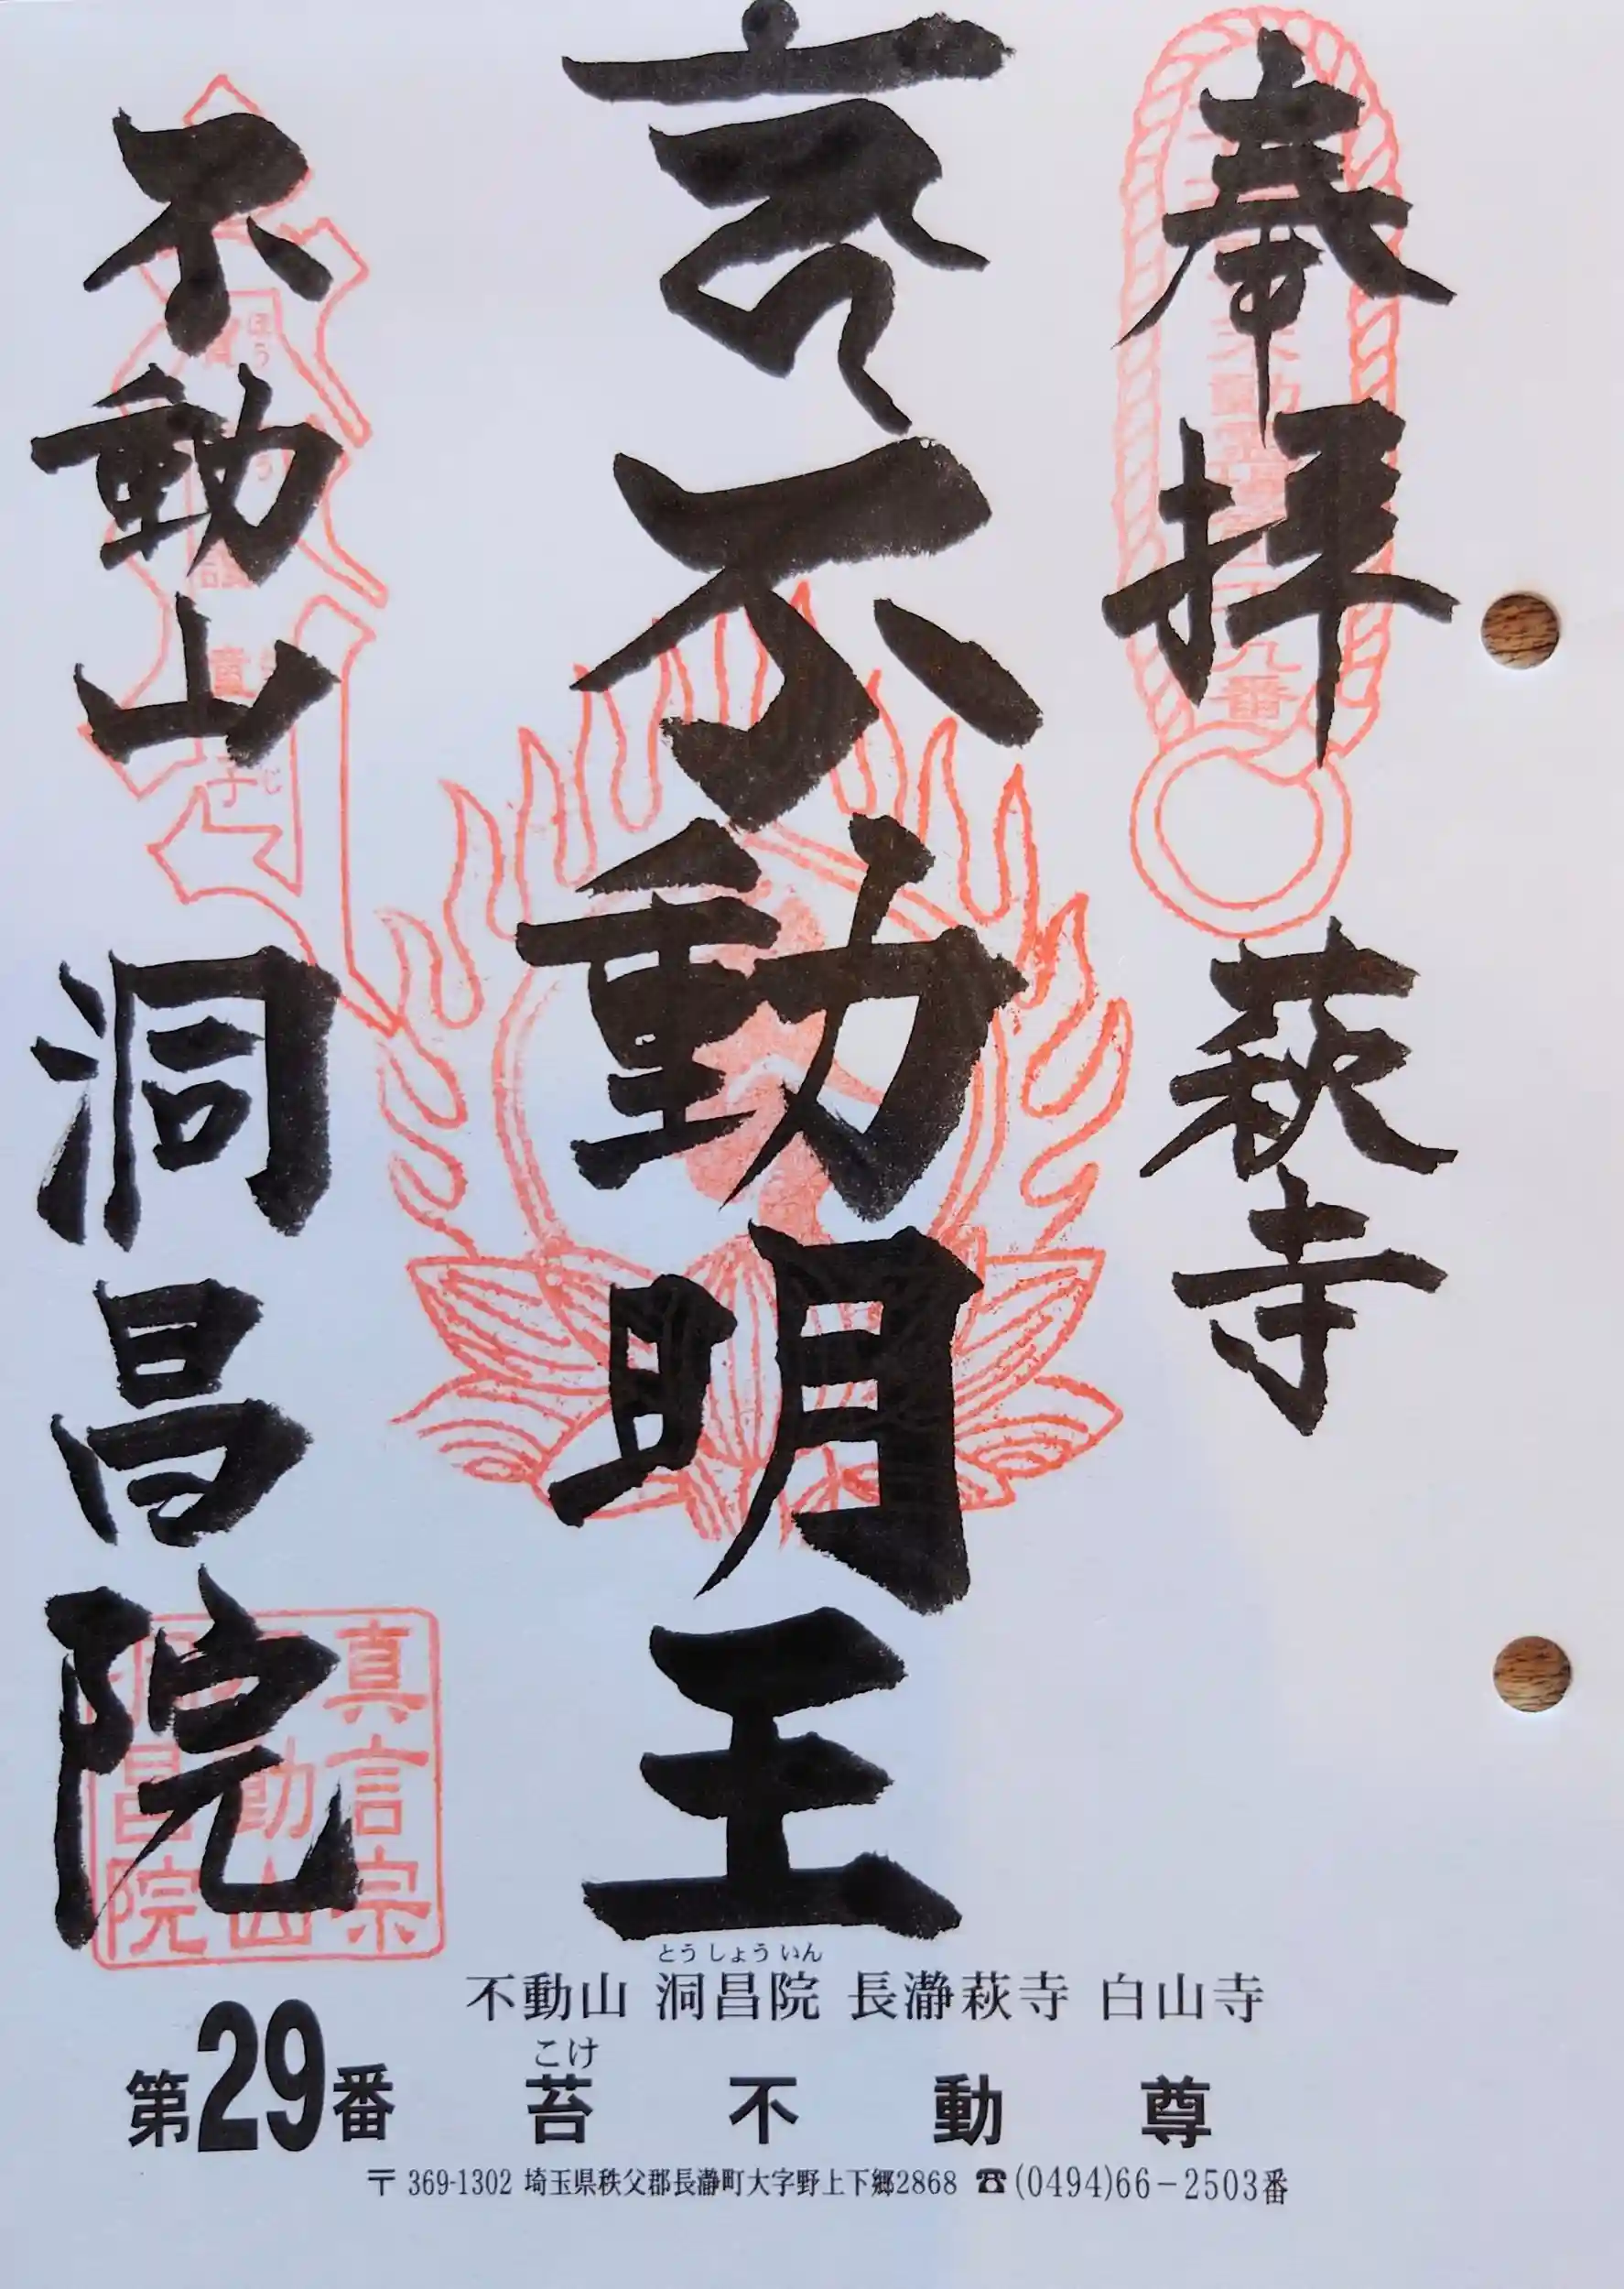 奉拝 萩寺
不動明王
不動山 洞昌院
九番
童
じ
ほう
真言宗
動山
昌院
とうしょういん
不動山 洞昌院 長瀞萩寺 白山寺
こけ
第29番 苔不動尊
〒369-1302 埼玉県秩父郡長瀞町大字野上下郷2868 ☎(0494)66-2503番